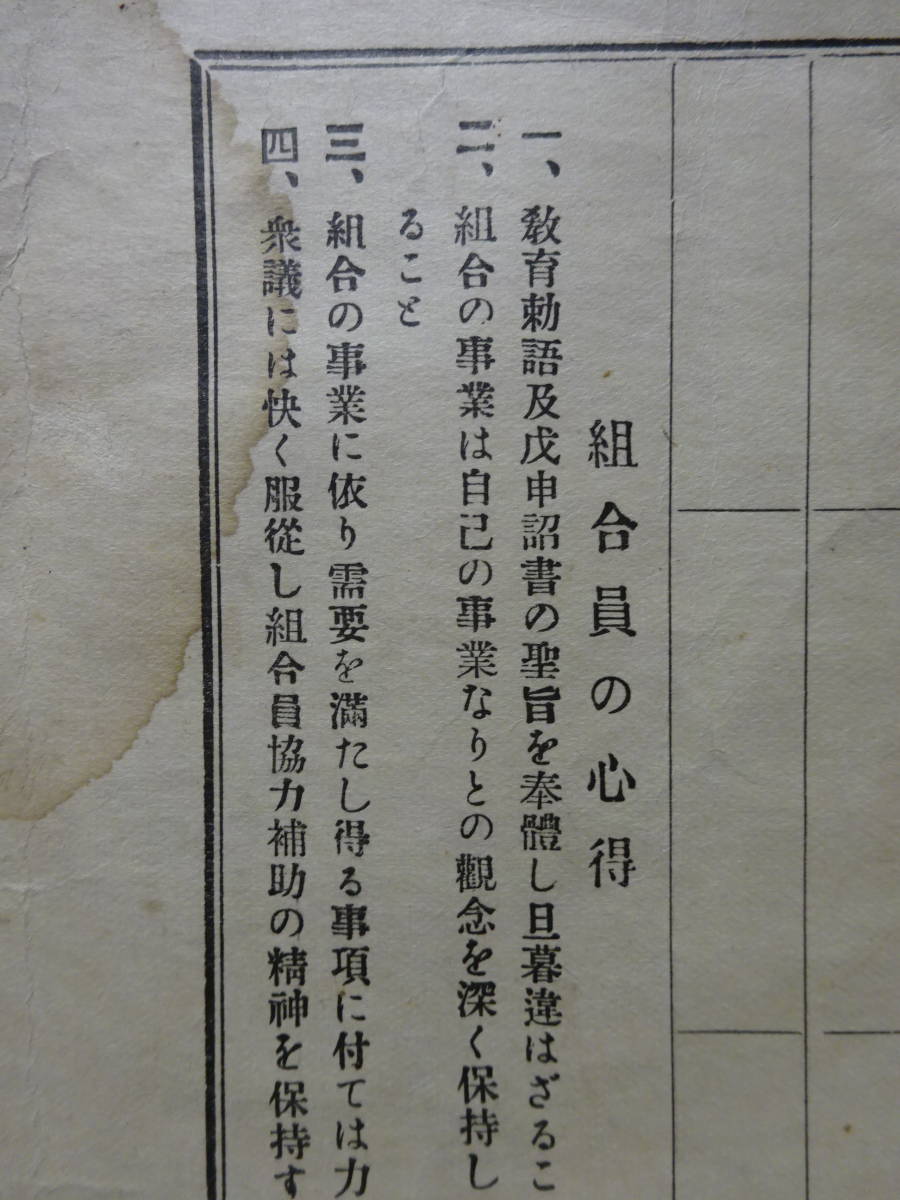 組合員の心得
一、教育勅語及戊申詔書の聖旨を奉體し旦暮違はざるこ
二、組合の事業は自己の事業なりとの觀念を深く保持し
ること
三、組合の事業に依り需要を滿たし得る事項に付ては力
四、衆議には快く服從し組合員協力補助の精神を保持す